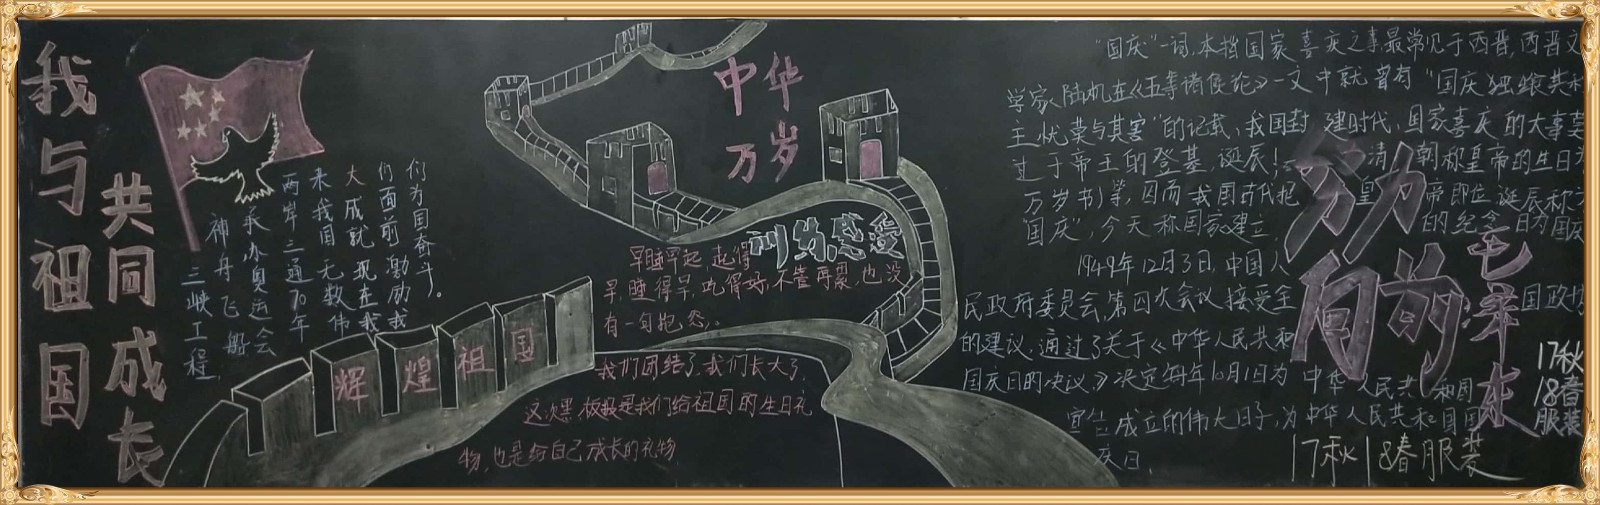 我与祖国
共同成长
三峡工程,
神舟飞船
承办奥运会
两岸三通70年
来我国无数伟
大成就现在我
们面前激励我
们为国奋斗。
辉煌祖国
中华
万岁
早睡早起,起得
早,睡得早,吃得好,不管再累,也没
有一句抱怨,
我们团结了,我们长大了,
这次黑板报是我们给祖国的生日礼
物,也是给自己成长的礼物
"国庆"一词,本指国家喜庆之事,最常见于西晋,西晋文
学家陆机在《五等诸侯论》一文中就曾有"国庆独飨其利
主忧莫与其害"的记载,我国封建时代,国家喜庆的大事莫
过于帝王的登基,诞辰!清朝称皇帝的生日为
万岁节)等,因而我国古代把皇帝即位诞辰称为
国庆",今天称国家建立的纪念日为国庆
1949年12月3日,中国人
民政府委员会,第四次会议接受全国政协
的建议,通过了关于《中华人民共和
国庆日的决议》决定每年10月1日为中华人民共和国
宣告成立的伟大日子,为中华人民共和国国
庆日,
向前
毛泽东
17秋
18春
服装
17秋18春服装